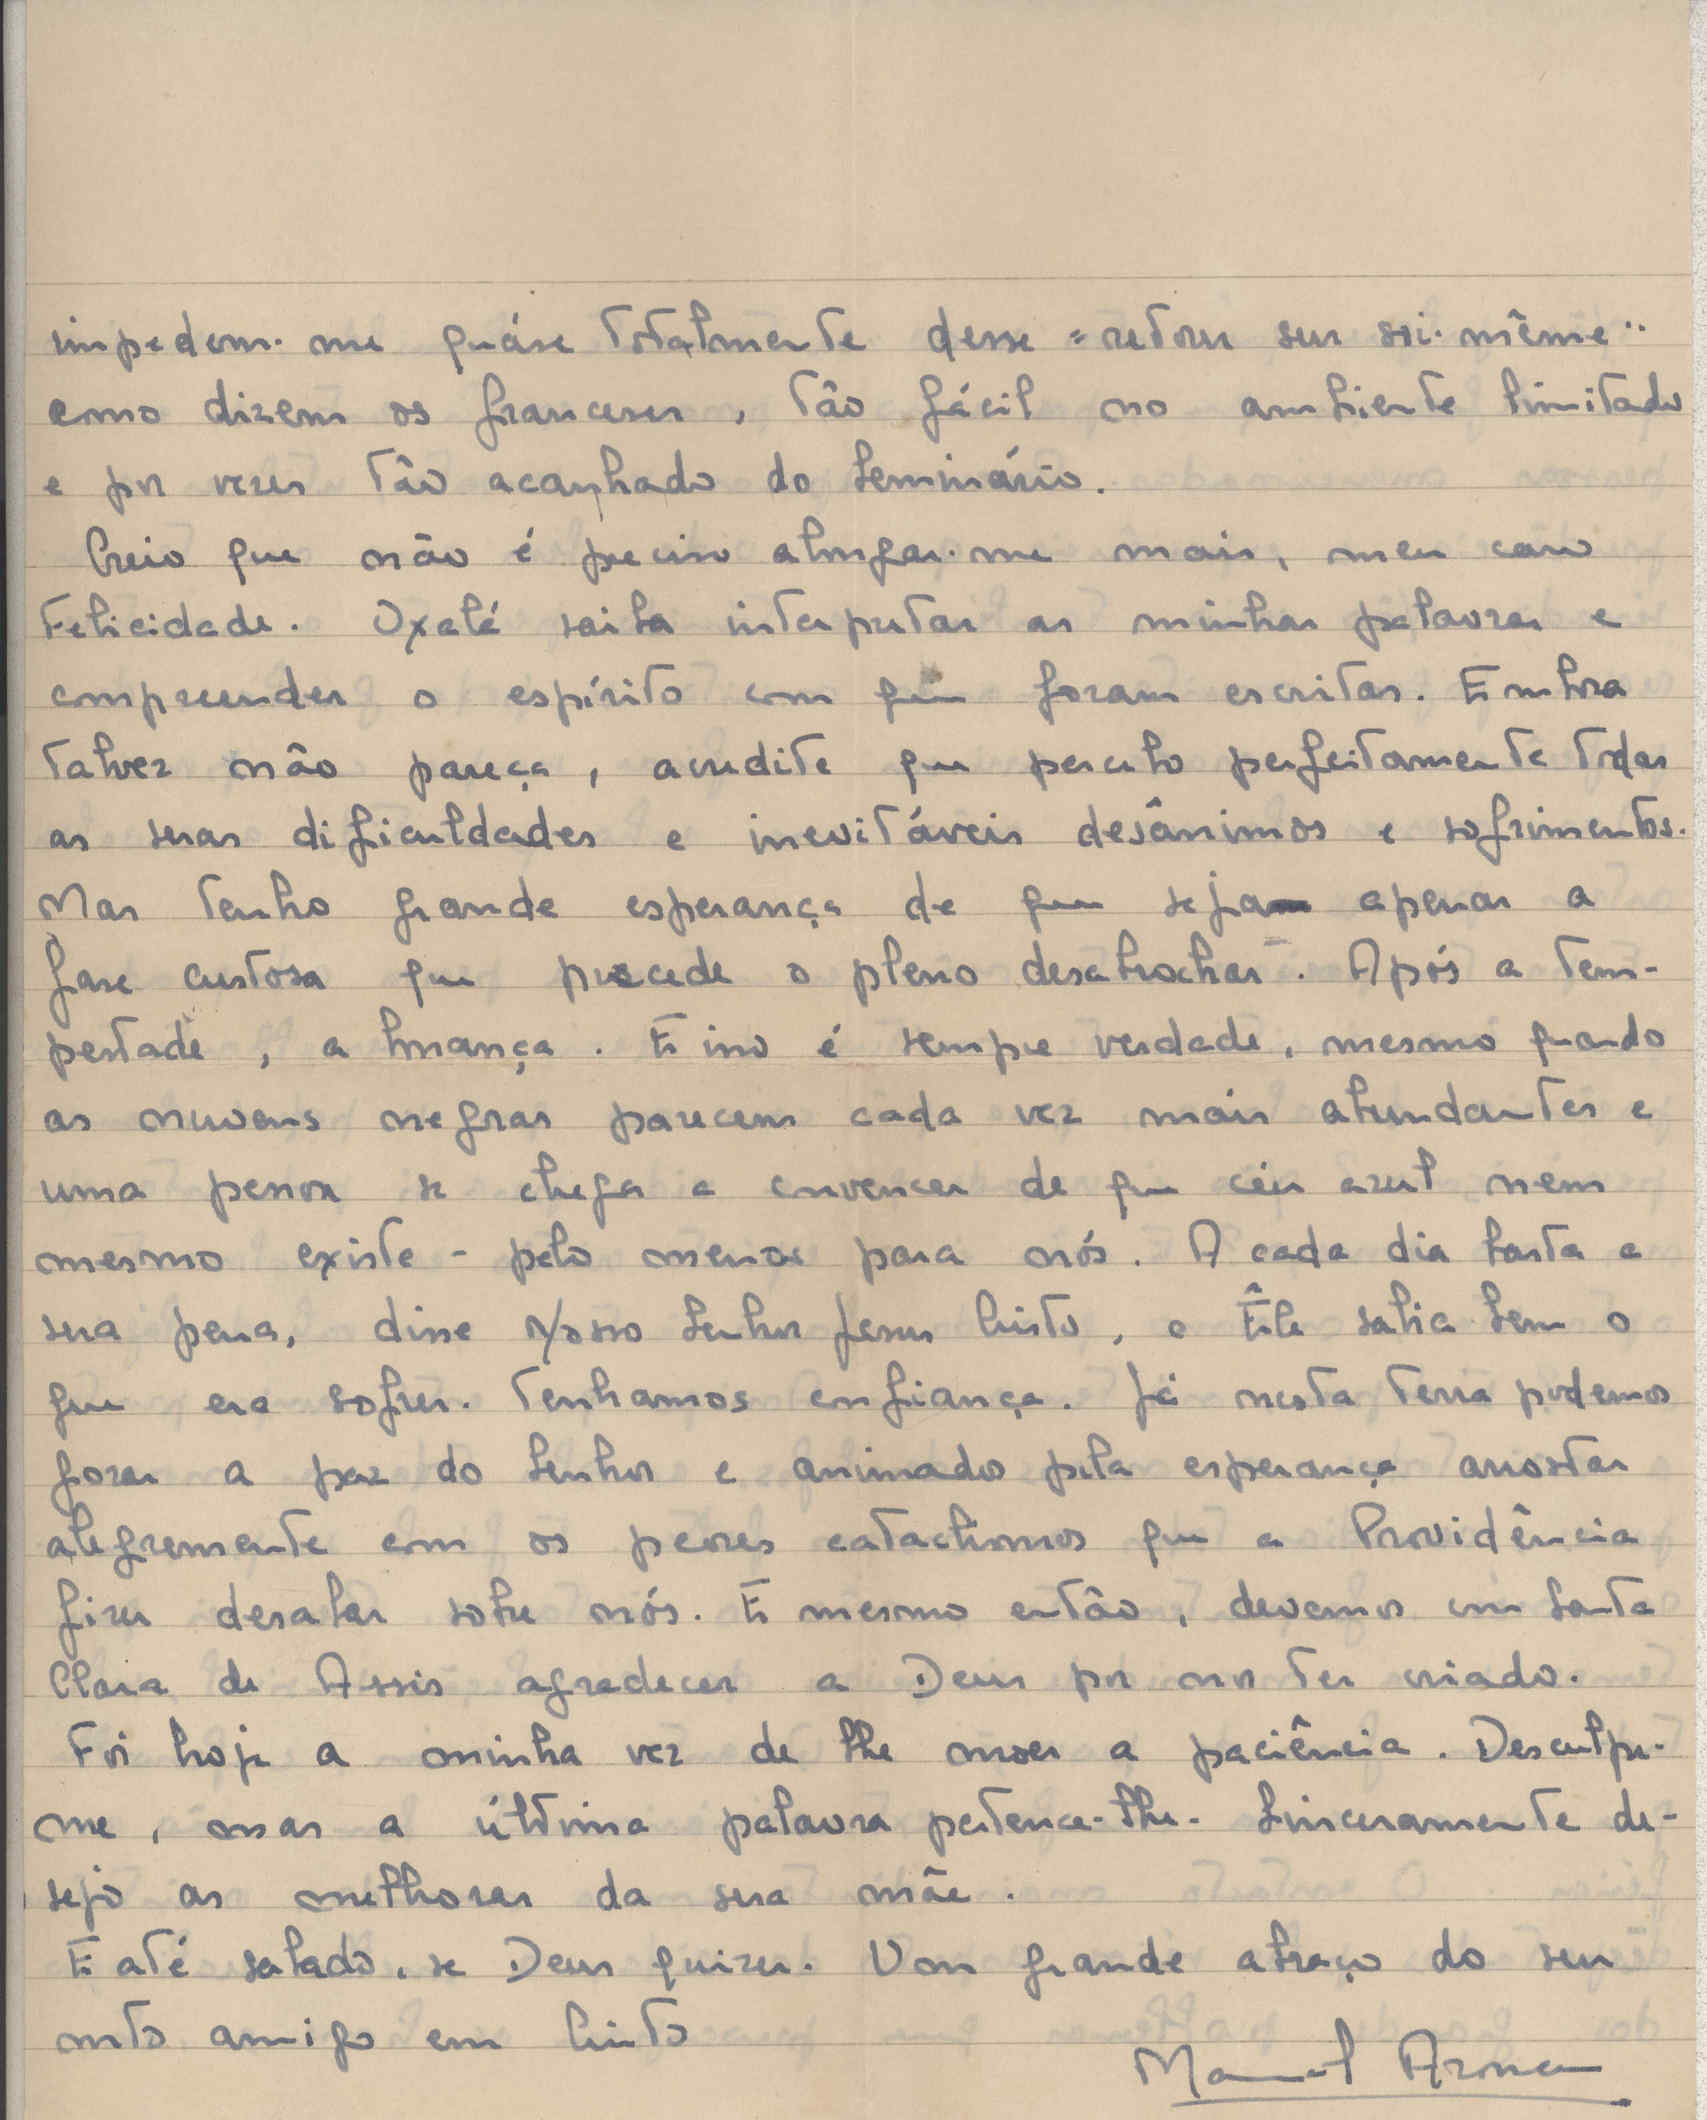 impedem-me quáse totalmente desse "retour sur soi-même"
como dizem os franceses, tão fácil no ambiente limitado
e por vezes tão acanhado do Seminário.
Creio que não é preciso alongar-me mais, meu caro
Felicidade. Oxalá saiba interpretar as minhas palavras e
compreender o espírito com que foram escritas. Embora
talvez não pareça, acredite que percebo perfeitamente todas
as suas dificuldades e inevitáveis desânimos e sofrimentos.
Mas tenho grande esperança de que seja apenas a
fase custosa que precede o pleno desabrochar. Após a tem-
pestade, a bonança. E isso é sempre verdade, mesmo quando
as nuvens negras parecem cada vez mais abundantes e
uma pessoa se chega a convencer de que céu azul nem
mesmo existe - pelo menos para nós. A cada dia basta a
sua pena, disse Nosso Senhor Jesus Cristo, e Êle sabia bem o
que era sofrer. Tenhamos confiança. Já nesta terra podemos
gozar a paz do Senhor e animados pela esperança arrostar
alegremente com os peores cataclismos que a Providência
fizer desabar sobre nós. E mesmo então, devemos com Santa
Clara de Assis agradecer a Deus por nos ter criado.
Foi hoje a minha vez de lhe moer a paciência. Desculpe-
me, mas a última palavra pertence-lhe. Sinceramente de-
sejo as melhoras da sua mãe.
E até sabado, se Deus quizer. Um grande abraço do seu
mto amigo em Cristo
Manuel